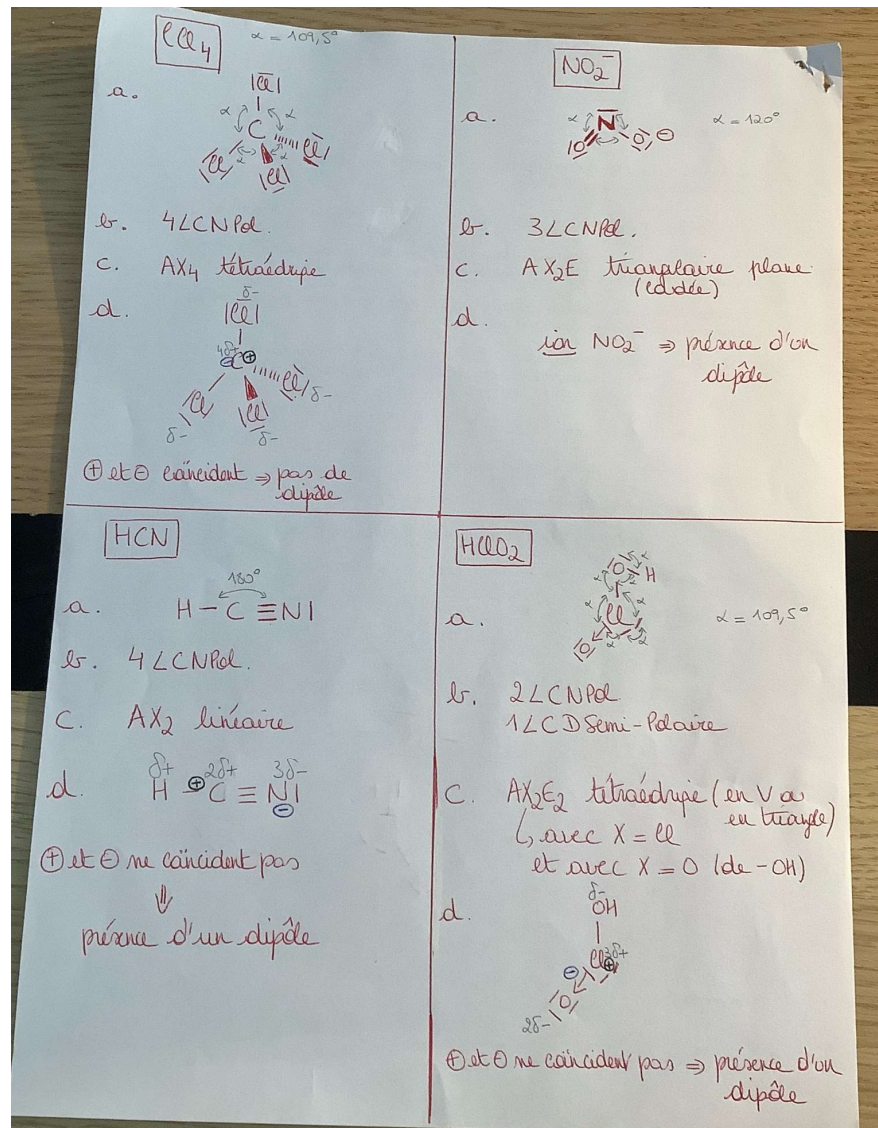 CCl₄ α = 109,5°
a.
|Cl|
α α
C
Cl α α Cl
Cl
b. 4LCNPol.
c. AX₄ tétraédrique
d.
δ-
|Cl|
4δ+ ⊖C⊕
Cl Cl δ-
|Cl|
δ- δ-
⊕ et ⊖ coïncident ⇒ pas de
dipôle
NO₂⁻
a. α N α = 120°
|O O| ⊖
b. 3LCNPol.
c. AX₂E triangulaire plane
(coudée)
d.
ion NO₂⁻ ⇒ présence d'un
dipôle
HCN
180°
a. H – C ≡ N|
b. 4LCNPol.
c. AX₂ linéaire
d. δ+ 2δ+ 3δ-
H ⊕ C ≡ N|
⊖
⊕ et ⊖ ne coïncident pas
⇓
présence d'un dipôle
HClO₂
O α H
α α
α Cl α
a. α = 109,5°
|O α α
b. 2LCNPol
1LCDSemi-Polaire
c. AX₂E₂ tétraédrique (en V ou
en triangle)
↳ avec X = Cl
et avec X = O (de –OH)
d.
δ-
OH
|
Cl 3δ+
⊖ ⊕
|O
2δ-
⊕ et ⊖ ne coïncident pas ⇒ présence d'un
dipôle